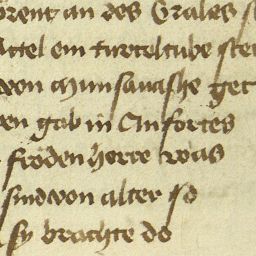 orent an des Grales s
attel ein turteltube ste
von Munsaluasche get
en gab in Anfortes
froden herre was
sind von alter so
sy brachte do